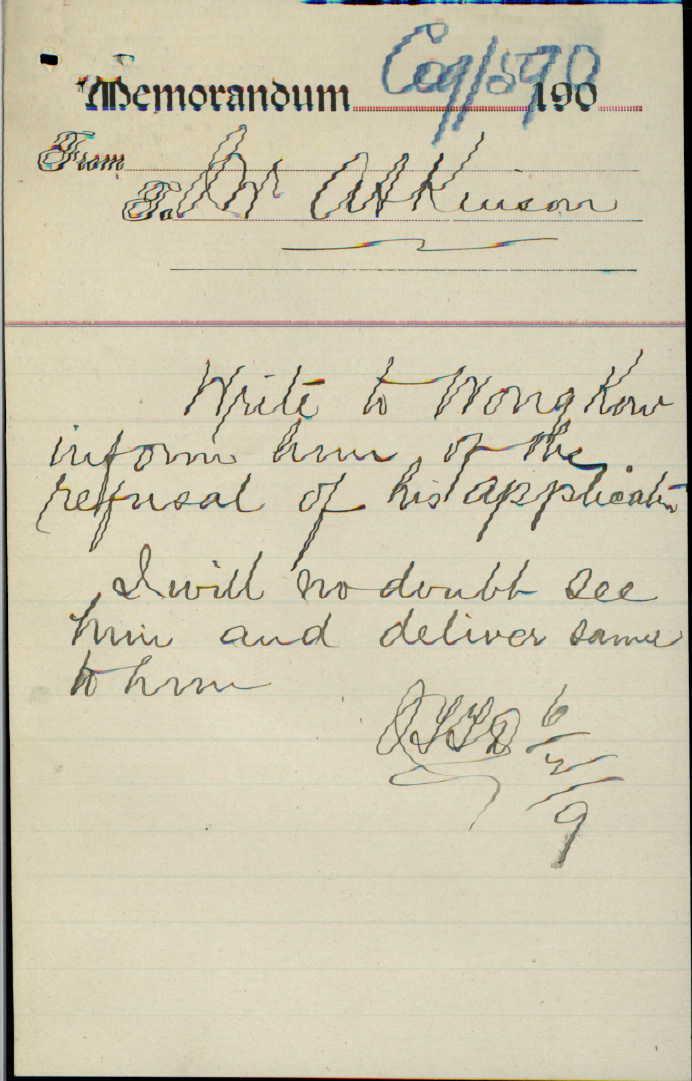 C09/590
Memorandum 190
From
To Mr Atkinson
Write to Wong Kow
inform him of the
refusal of his applicatn
I will no doubt see
him and deliver same
to him
6/2/9